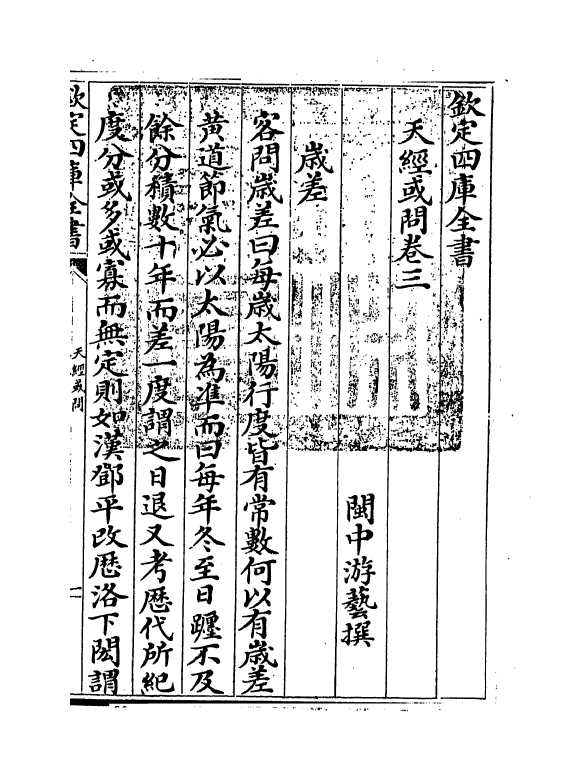 欽定四庫全書
天經或問卷三
閩中游藝撰
歳差
客問歳差曰每歳太陽行度皆有常數何以有歳差
黄道節氣必以太陽為準而曰每年冬至日躔不及
餘分積數十年而差一度謂之日退又考歴代所紀
度分或多或寡而無定則如漢鄧平改歴洛下閎謂
欽定四庫全書
天經或問
一